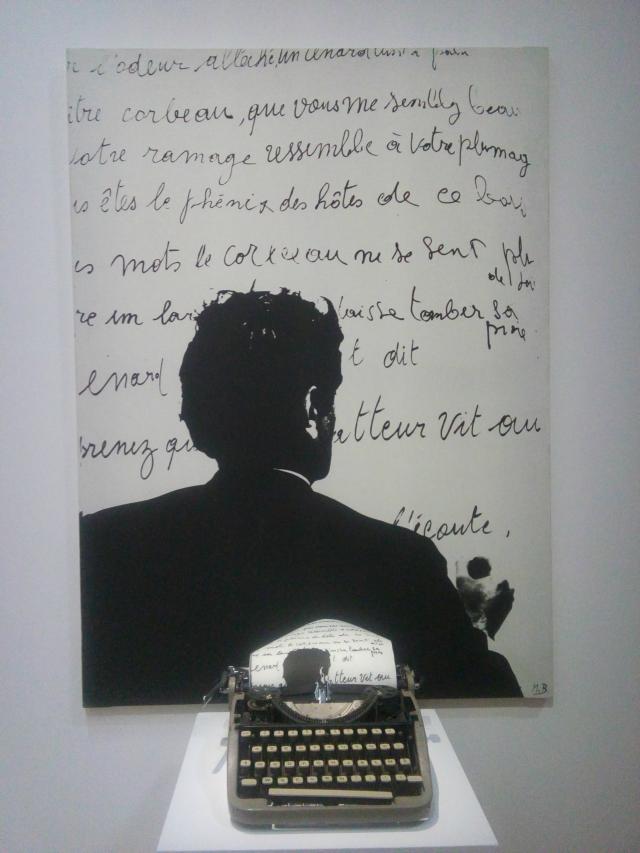 l'odeur alléché, un renard
itre corbeau, que vous me sembley beau
votre ramage ressemble à votre plumag
is êtes le phénix des hôtes de ce bois
es mots le corbeau ne se sent plu
de
re un lar laisse tomber sa
proie
enard t dit
prenez qu atteur vit au
l'écoute,
M.B
enard t dit
tteur vit au